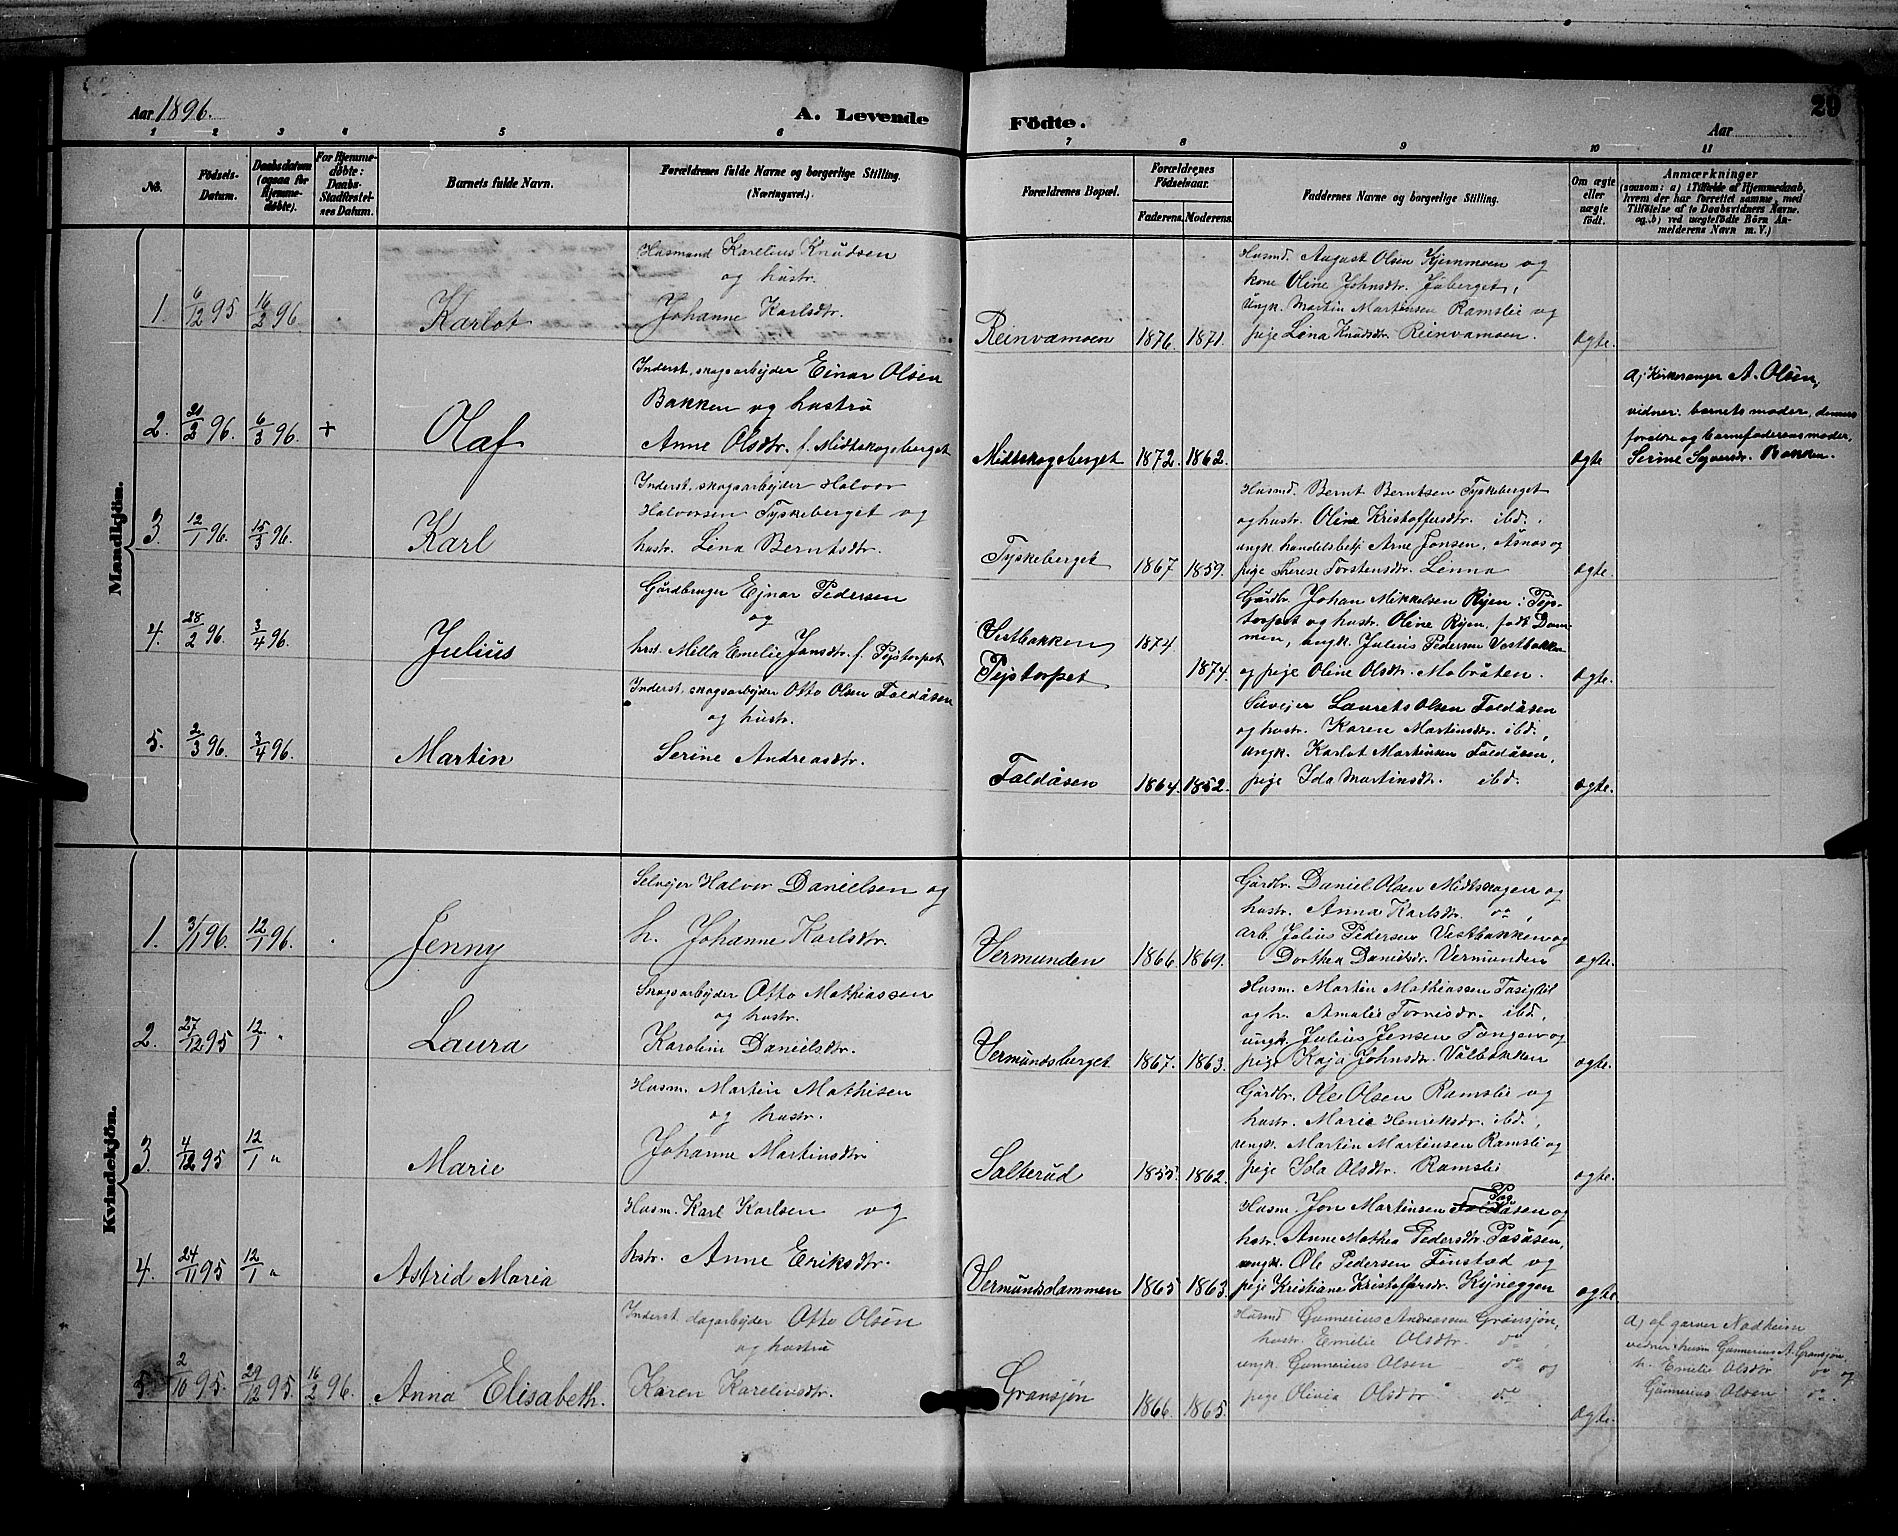 Aar 1896.
A. Levende
Födte.
Aar
20
1 2 3 4 5 6 7 8 9 10 11
No.
Födsels-
Datum.
Daabsdatum
(ogsaa for
Hjemme-
döbte).
For Hjemme-
döbte:
Daabs-
Stadfæstel-
nes Datum.
Barnets fulde Navn.
Forældrenes fulde Navne og borgerlige Stilling.
(Næringsvei.)
Forældrenes Bopæl.
Forældrenes
Födselsaar.
Faderens. Moderens.
Faddernes Navne og borgerlige Stilling.
Om ægte
eller
uægte
födt.
Anmærkninger
(saasom: a) i Tilfælde af Hjemmedaab,
hvem der har forrettet samme, med
Tilföielse af to Daabsvidners Navne,
og b) ved uægtefödte Börn An-
melderens Navn m. V.)
Mandkjön.
1 6/12 95 16/2 96. Karlot
Husmand Karelius Knudsen
og hustr.
Johanne Karlsdtr.
Reinvamoen 1876. 1871.
Husmd. August Olsen Kjernmoen og
kone Oline Johnsdtr. Juberget,
Ungk. Martin Martinsen Ramslie og
pige Lina Knudsdtr. Reinvamoen.
ægte.
2. 21/2 96. 6/3 96. + Olaf
Inderst. skogsarbejder Einar Olsen
Bakken og hustru
Anne Olsdtr. f. Midtskogsberget
Midtskogsberget 1872. 1862.
ægte
a) Kirkesanger A. Olsen,
vidner: barnets moder, dennes
forældre og barnefaderens moder,
Serine Syversdr. Bakken.
3 12/1 96. 15/3 96. Karl
Inderst. skogsarbejder Halvor
Halvorsen Tyskeberget og
hustr. Lina Berntsdtr.
Tyskeberget 1867 1859.
Husmd. Bernt Berntsen Tyskeberget
og hustr. Oline Kristoffersdtr. ibd.,
ungk. handelsbetj. Arne Jonsen, Åsnæs og
pige Therese Torstensdtr. Linna
ægte.
4. 28/2 96. 3/4 96. Julius
Gårdbruger Ejnar Pedersen
og
hust. Milla Emelie Jonsdtr. f. Pejstorpet
Vestbakken 1874
Pejstorpet 1874.
Gårdbr. Johan Mikkelsen Rijen i Pejs-
torpet og hustr. Oline Rijen, født Dam-
men, ungk. Julius Pedersen Vestbakken
og pige Oline Olsdtr. Mobråten.
ægte.
5. 2/3 96. 3/4 96. Martin
Inderst. skogsarbejder Otto Olsen Faldåsen
og hustr.
Serine Andreasdtr.
Faldåsen 1864. 1852.
Selvejer Laurets Olsen Faldåsen
og hustr. Karen Martinsdtr. ibd.,
ungk. Karlot Martinsen Faldåsen,
pige Ida Martinsdtr. ibd.
ægte.
Kvindekjön.
1. 3/1 96. 12/1 96. Jenny
Selvejer Halvor Danielsen og
h. Johanne Karlsdtr.
Vermunden 1866 1869.
Gårdbr. Daniel Olsen Midtskogen og
hustr. Anna Karlsdtr. do,
arb. Julius Pedersen Vestbakken og
Dorthea Danielsdr. Vermunden
ægte.
2. 27/12 95 12/1 " Laura
Skogsarbejder Otto Mathiassen
og hustr.
Karoline Danielsdtr.
Vermundsberget 1867. 1863.
Husm. Martin Mathiassen
og h. Amalie ibd.,
ungk. Julius Jensen Tangen og
pige Kaja Johnsdtr. Vålbakken
ægte.
3. 4/12 95 12/1 " Marie
Husm. Martin Mathisen
og hustr.
Johanne Martinsdtr
Salterud 1855. 1862.
Gårdbr. Ole Olsen Ramslie og
hustr. Maria Henriksdtr. ibd.,
ungk. Martin Martinsen Ramsli og
pige Ida Olsdtr. Ramsli
ægte.
4. 24/11 95 12/1 " Astrid Maria
Husm. Karl Karlsen og
hstr. Anne Eriksdtr.
Vermundsdammen 1865 1863.
Husm. Jon Martinsen Pasåsen og
hstr. Anne Mathea Pedersdtr. Pasåsen,
ungk. Ole Pedersen Finstad og
pige Kristiane Kristoffersdr. Kyneggen
ægte
5. 2/10 95. 29/12 95. 16/2 96. Anna Elisabeth.
Inderst dagarbejder Otto Olsen
og hustru
Karen Kareliusdtr.
Gransjøn 1866. 1865.
Husmd Gunnerius Andreassen Gransjøn,
hustr. Emelie Olsdtr. do,
ungk. Gunnerius Olsen do og
pige Olivia Olsdtr do.
ægte.
a) af garver Nodheim
vidner: husm Gunnerius A. Gransjøn,
h. Emelie Olsdtr do og
Gunnerius Olsen do.